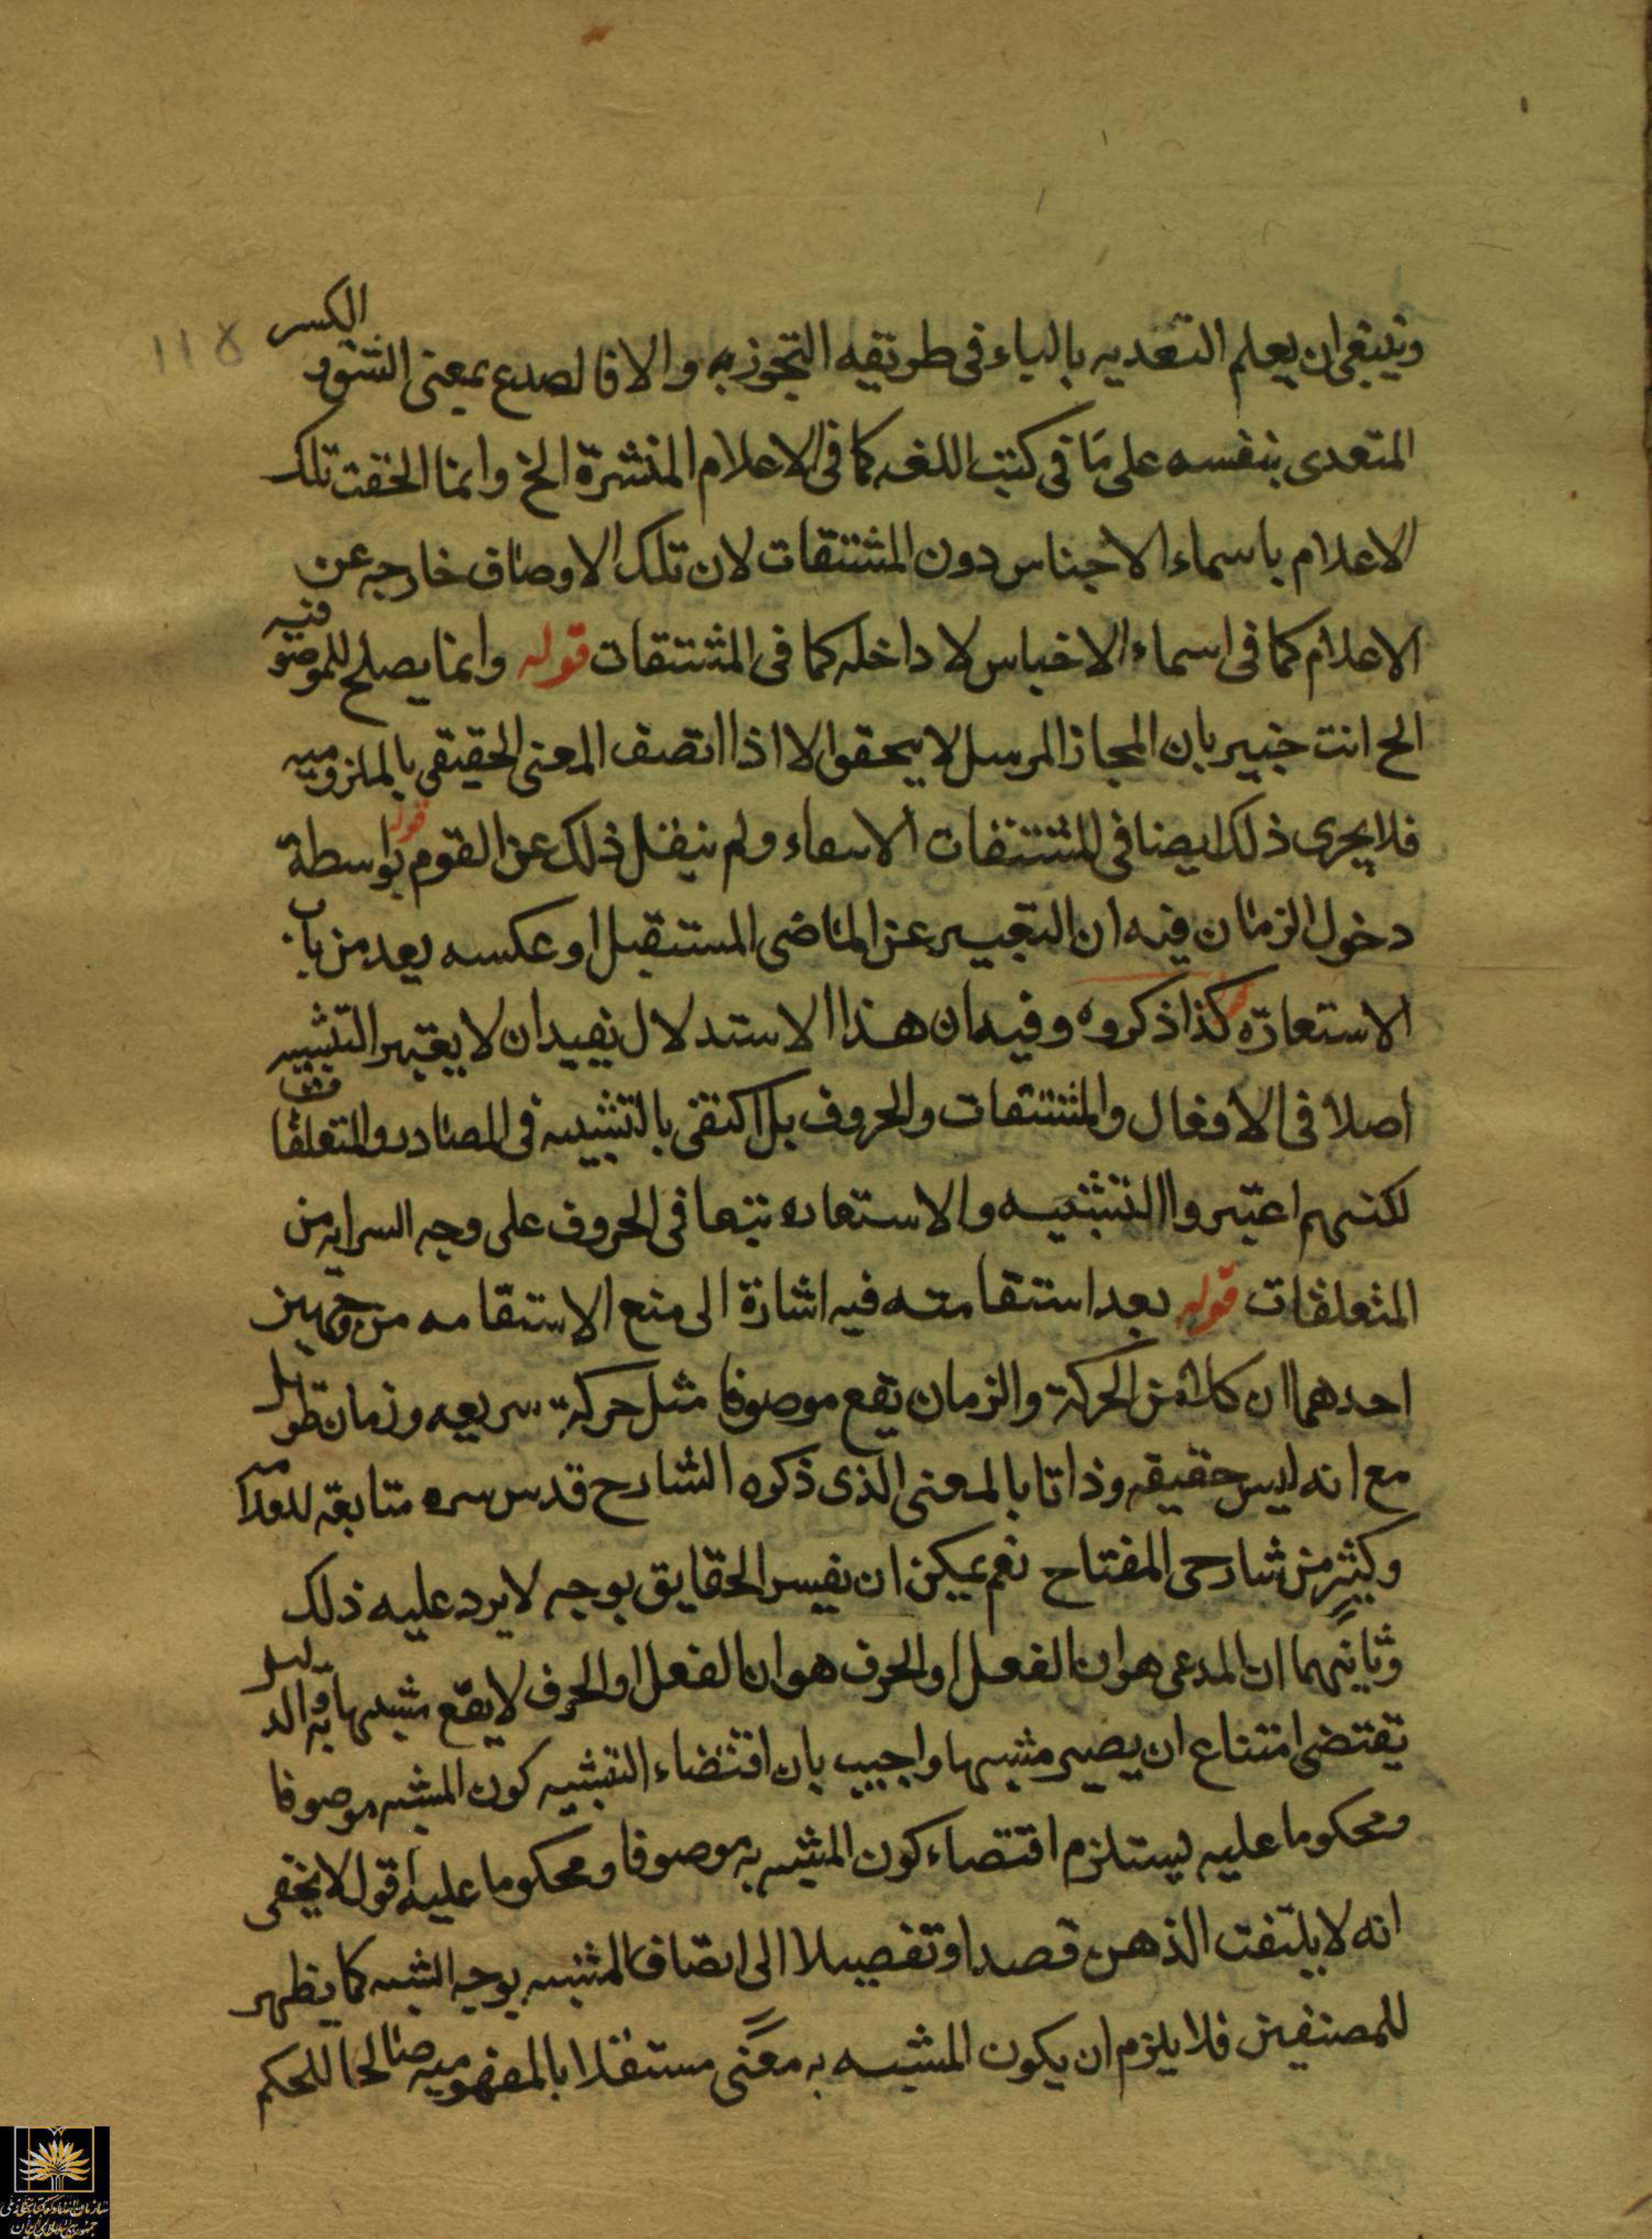 وينبغى ان يعلم التعديه بالباء فى طريقه التجوز به والا فالصدع بمعنى الشق والكسر
المتعدى بنفسه على ما فى كتب اللغه كما فى الاعلام المشتهرة الخ وانما الحقت تلك
الاعلام باسماء الاجناس دون المشتقات لان تلك الاوصاف خارجه عن
الاعلام كما فى اسماء الاجناس لا داخله كما فى المشتقات قوله وانما يصلح للموصوفيه
الخ انت خبير بان المجاز المرسل لا يتحقق الا اذا اتصف المعنى الحقيقى بالملزوميه
فلا يجرى ذلك ايضا فى المشتقات الاسماء ولم ينقل ذلك عن القوم قوله بواسطة
دخول الزمان فيه ان التعبير عن الماضى المستقبل او عكسه يعد من باب
الاستعارة كذا ذكروه وفيه ان هذا الاستدلال يفيد ان لا يعتبر التشبيه
اصلا فى الافعال والمشتقات والحروف بل اكتفى بالتشبيه فى المصادر والمتعلقات
لكنهم اعتبروا التشبيه والاستعاره تبعا فى الحروف على وجه السرايه من
المتعلقات قوله بعد استقامته فيه اشارة الى منع الاستقامه من وجهين
احدهما ان كلا من الحركة والزمان تقع موصوفا مثل حركة سريعه وزمان طويل
مع انه ليس حقيقه وذاتا بالمعنى الذى ذكره الشارح قدس سره متابعه للعلامه
وكثير من شارحى المفتاح نعم يمكن ان يفسر الحقايق بوجه لا يرد عليه ذلك
وثانيهما ان المدعى هو ان الفعل او الحرف هو ان الفعل او الحرف لا يقع مشبها به والدليل
يقتضى امتناع ان يصير مشبها واجيب بان اقتضاء التشبيه كون المشبه موصوفا
ومحكوما عليه يستلزم اقتضاء كون المشبه به موصوفا ومحكوما عليه اقول لا يخفى
انه لا يلتفت الذهن قصدا وتفصيلا الى اتصاف المشبه بوجه الشبه كما يظهر
للمصنفين فلا يلزم ان يكون المشبه به معنى مستقلا بالمفهوميه صالحا للحكم